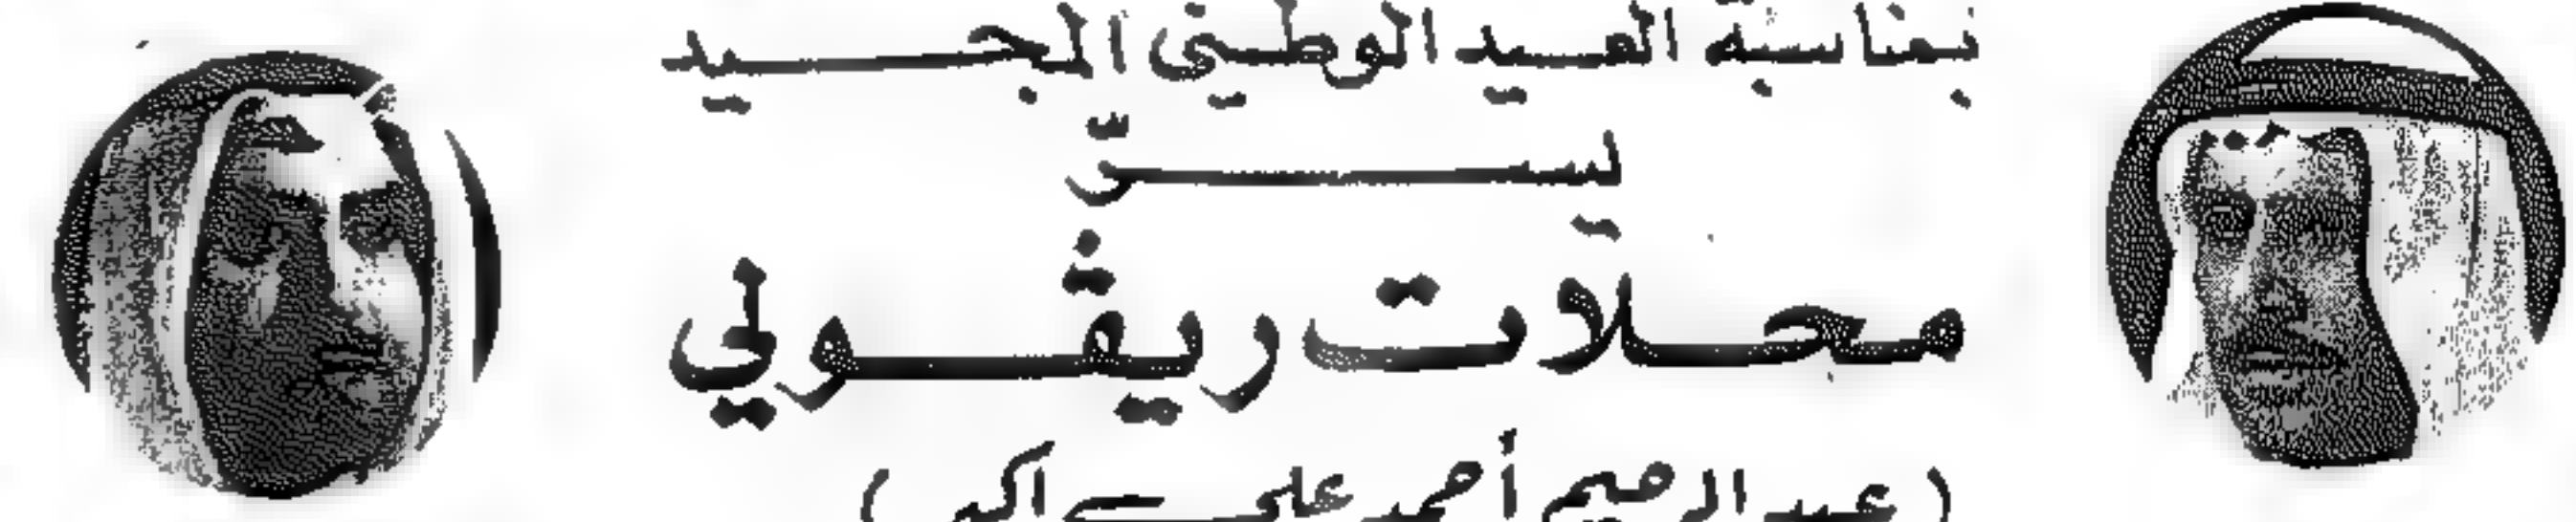 بمناسبة العيد الوطني المجيد
يسرّ
محلات ريڤولي
(عبد الرحيم أحمد علي اكبر)